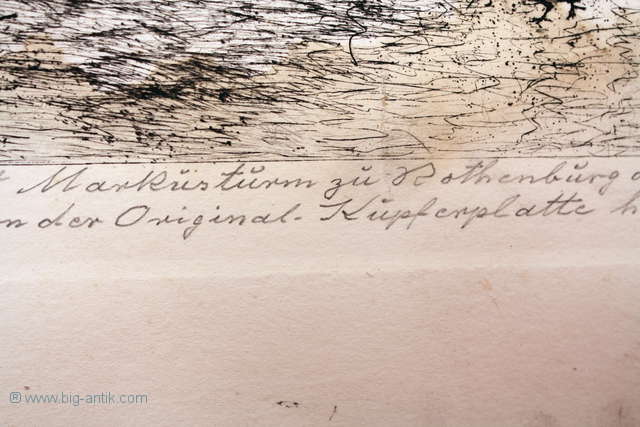 Markusturm zu Rothenburg
n der Original-Kupferplatte h
® www.big-antik.com